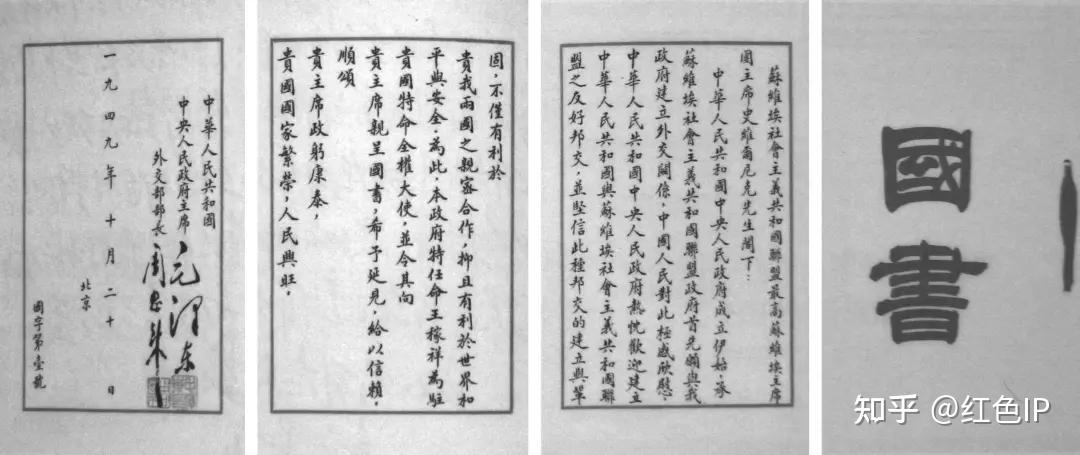 國書
蘇維埃社會主義共和國聯盟最高蘇維埃主席
團主席史維爾尼克先生閣下：
中華人民共和國中央人民政府成立伊始，承
蘇維埃社會主義共和國聯盟政府首先願與我
政府建立外交關係，中國人民對此極感欣慰。
中華人民共和國中央人民政府熱忱歡迎建立
中華人民共和國與蘇維埃社會主義共和國聯
盟之友好邦交，並堅信此種邦交的建立與鞏
固，不僅有利於
貴我兩國之親密合作，抑且有利於世界和
平與安全。為此，本政府特任命王稼祥為駐
貴國特命全權大使，並令其向
貴主席親呈國書，希予延見，給以信賴。
順頌
貴主席政躬康泰，
貴國國家繁榮，人民興旺。
中華人民共和國
中央人民政府主席 毛澤東
外交部部長 周恩來
一九四九年十月二十日
北京
國字第壹號
知乎 @红色IP